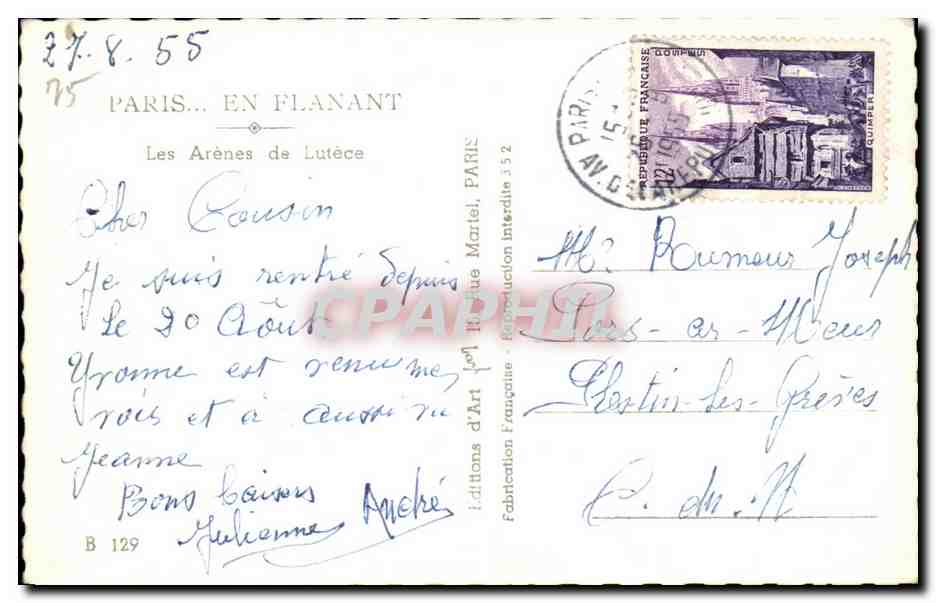 27.8.55
75
PARIS... EN FLANANT
Les Arènes de Lutèce
Cher Cousin
Je suis rentré depuis
le 20 Août
Yvonne est venu me
voir et a aussi vu
Jeanne
Bons baisers
Julienne André
B 129
Editions d'Art Rue Martel, PARIS
Fabrication Française - Reproduction interdite 352
CPAPHIL
PARIS
15
1955
AV. D
POSTES
REPUBLIQUE FRANÇAISE
12F
QUIMPER
Mr Rumeur Joseph
Pors-ar-Meur
Plestin-les-Grèves
C. du N